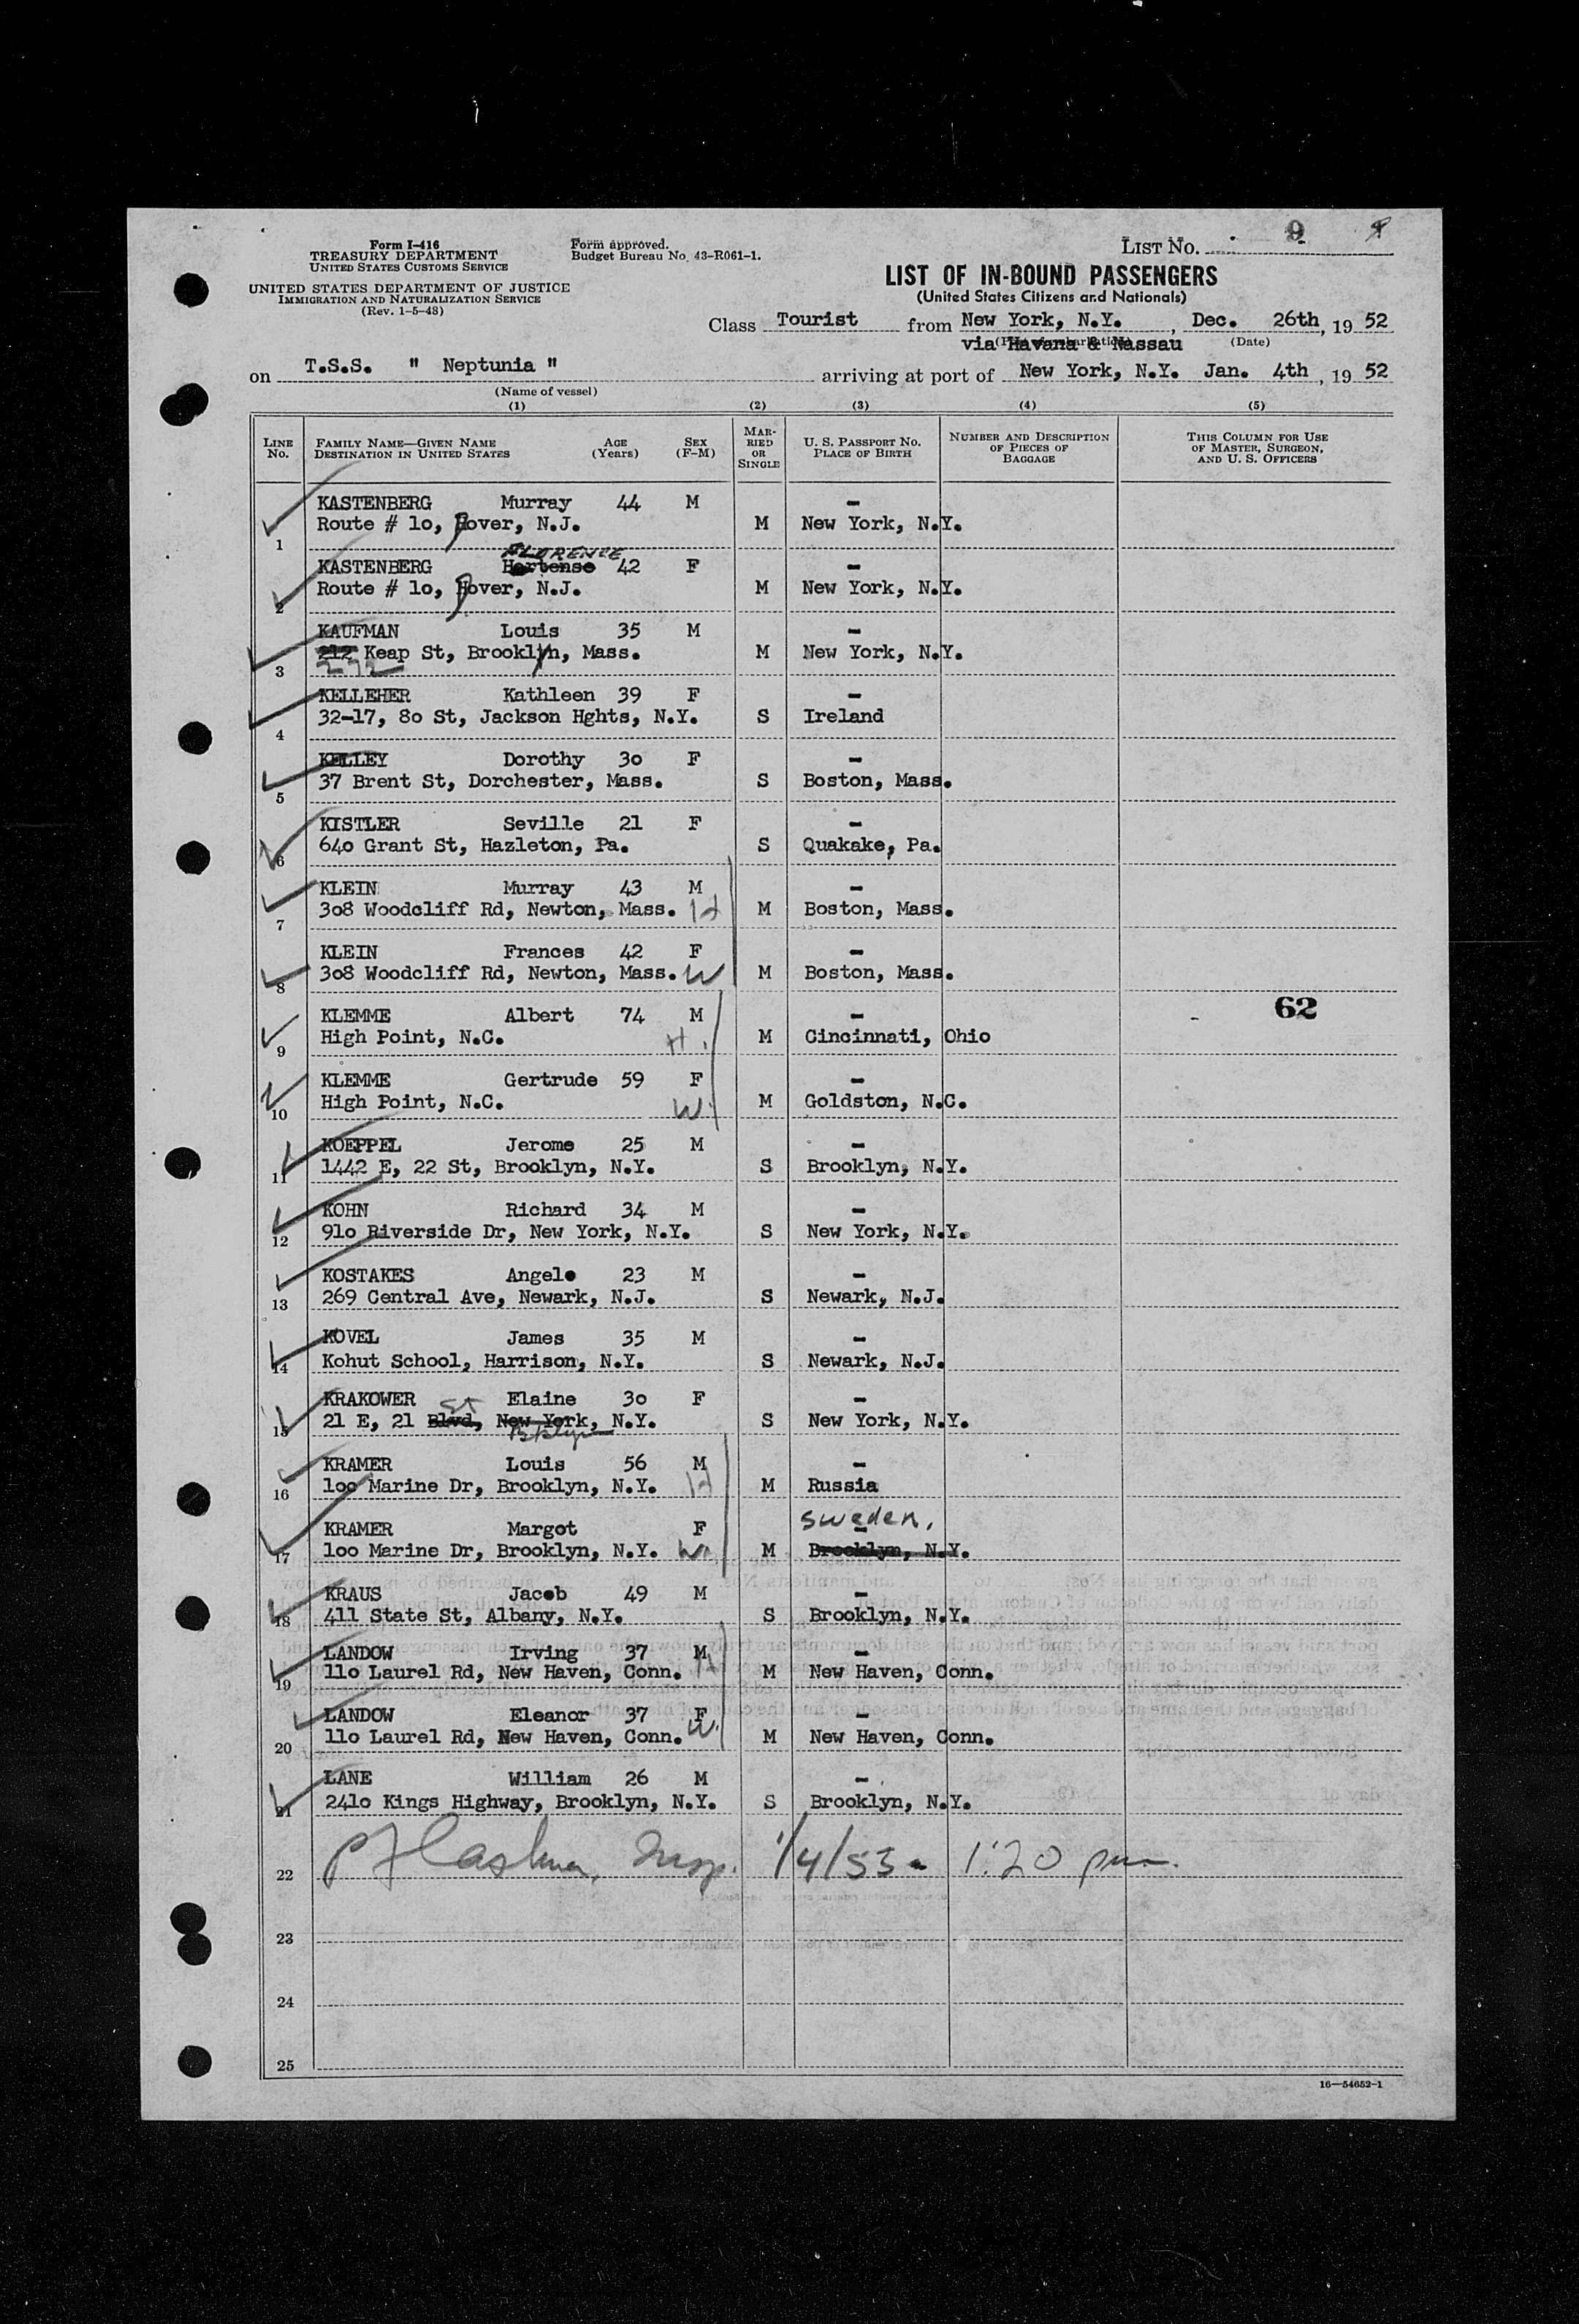 Form I-416
TREASURY DEPARTMENT
UNITED STATES CUSTOMS SERVICE
UNITED STATES DEPARTMENT OF JUSTICE
IMMIGRATION AND NATURALIZATION SERVICE
(Rev. 1-5-48)
Form approved.
Budget Bureau No. 43-R061-1.
LIST NO. 9
LIST OF IN-BOUND PASSENGERS
(United States Citizens and Nationals)
Class Tourist from New York, N.Y., Dec. 26th, 19 52
via Havana & Nassau (Date)
on T.S.S. " Neptunia " arriving at port of New York, N.Y. Jan. 4th, 19 52
(Name of vessel)
(1) (2) (3) (4) (5)
LINE NO. FAMILY NAME—GIVEN NAME DESTINATION IN UNITED STATES AGE (YEARS) SEX (F-M) MARRIED OR SINGLE U. S. PASSPORT NO. PLACE OF BIRTH NUMBER AND DESCRIPTION OF PIECES OF BAGGAGE THIS COLUMN FOR USE OF MASTER, SURGEON, AND U. S. OFFICERS
KASTENBERG Murray 44 M -
1 Route # 1o, Dover, N.J. M New York, N.Y.
FLORENCE
KASTENBERG Hortense 42 F -
2 Route # 1o, Dover, N.J. M New York, N.Y.
KAUFMAN Louis 35 M -
212 Keap St, Brooklyn, Mass. M New York, N.Y.
3 272
KELLEHER Kathleen 39 F -
32-17, 8o St, Jackson Hghts, N.Y. S Ireland
4
KELLEY Dorothy 3o F -
37 Brent St, Dorchester, Mass. S Boston, Mass.
5
KISTLER Seville 21 F -
64o Grant St, Hazleton, Pa. S Quakake, Pa.
6
KLEIN Murray 43 M -
3o8 Woodcliff Rd, Newton, Mass. H M Boston, Mass.
7
KLEIN Frances 42 F -
3o8 Woodcliff Rd, Newton, Mass. W M Boston, Mass.
8
KLEMME Albert 74 M - 62
High Point, N.C. H. M Cincinnati, Ohio
9
KLEMME Gertrude 59 F -
High Point, N.C. W. M Goldston, N.C.
10
KOEPPEL Jerome 25 M -
1442 E, 22 St, Brooklyn, N.Y. S Brooklyn, N.Y.
11
KOHN Richard 34 M -
91o Riverside Dr, New York, N.Y. S New York, N.Y.
12
KOSTAKES Angelo 23 M -
269 Central Ave, Newark, N.J. S Newark, N.J.
13
KOVEL James 35 M -
Kohut School, Harrison, N.Y. S Newark, N.J.
14
KRAKOWER St Elaine 3o F -
21 E, 21 Blvd, New York, N.Y. S New York, N.Y.
15 Bklyn
KRAMER Louis 56 M -
1oo Marine Dr, Brooklyn, N.Y. H M Russia
16
sweden.
KRAMER Margot F -
1oo Marine Dr, Brooklyn, N.Y. W. M Brooklyn, N.Y.
17
KRAUS Jacob 49 M -
411 State St, Albany, N.Y. S Brooklyn, N.Y.
18
LANDOW Irving 37 M -
11o Laurel Rd, New Haven, Conn. H M New Haven, Conn.
19
LANDOW Eleanor 37 F -
11o Laurel Rd, New Haven, Conn. W. M New Haven, Conn.
20
LANE William 26 M -
241o Kings Highway, Brooklyn, N.Y. S Brooklyn, N.Y.
21
22 Insp. 1/4/53 - 1:20 pm.
23
24
25
16—54652-1